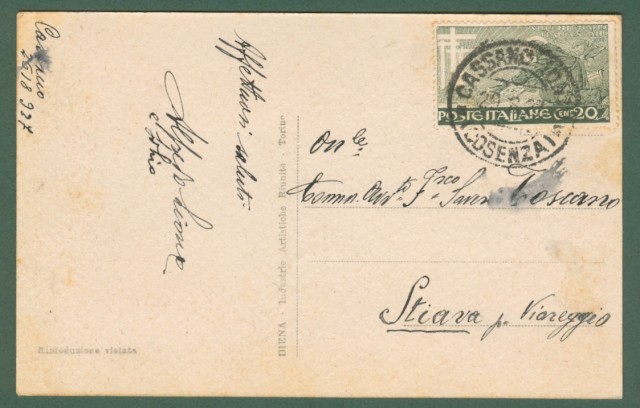 Cassano
2618 927
Affettuosi saluti
DIENA - Industrie Artistiche Riunite - Torino
Riproduzione vietata
POSTE ITALIANE CENT. 20
CASSANO
(COSENZA)
On le
Comm. Avv. Fsco Saro Toscano
Stiava p. Viareggio